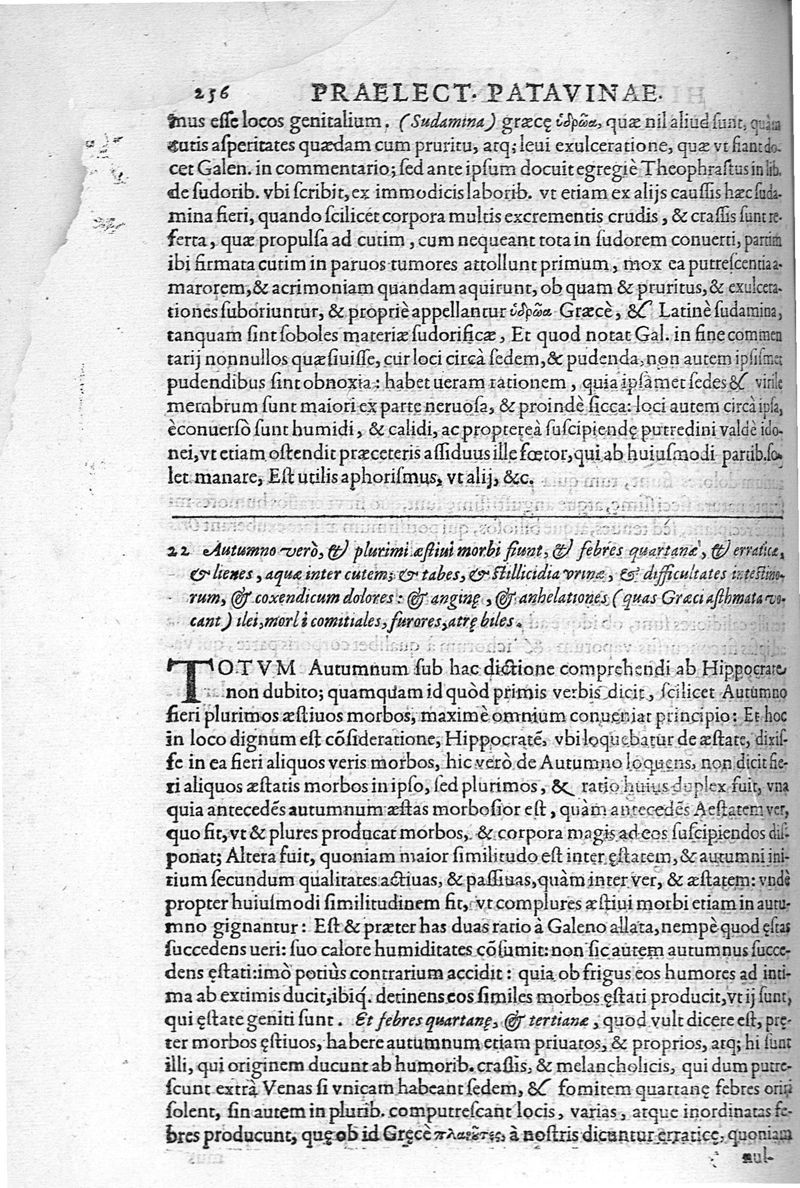 256 PRAELECT. PATAVINAE.
mus esse locos genitalium. (Sudamina) græcę ὑδρῶα, quæ nil aliud sunt, quàm
cutis asperitates quædam cum pruritu, atq; leui exulceratione, quæ vt fiant do-
cet Galen. in commentario; sed ante ipsum docuit egregiè Theophrastus in lib.
de sudorib. vbi scribit, ex immodicis laborib. vt etiam ex alijs caussis hæc suda-
mina fieri, quando scilicet corpora multis excrementis crudis, & crassis sunt re-
ferta, quæ propulsa ad cutim, cum nequeant tota in sudorem conuerti, partim
ibi firmata cutim in paruos tumores attollunt primum, mox ea putrescentia a-
marorem, & acrimoniam quandam aquirunt, ob quam & pruritus, & exulcera-
tiones suboriuntur, & propriè appellantur ὑδρῶα Græcè, & Latinè sudamina,
tanquam sint soboles materiæ sudorificæ, Et quod notat Gal. in fine commen
tarij nonnullos quæsiuisse, cur loci circà sedem, & pudenda, non autem ipsismet
pudendibus sint obnoxia: habet ueram rationem, quia ipsamet sedes & virile
membrum sunt maiori ex parte neruosa, & proindè sicca: loci autem circà ipsa,
èconuersò sunt humidi, & calidi, ac proptereà suscipiendę putredini valdè ido-
nei, vt etiam ostendit præceteris assiduus ille fœtor, qui ab huiusmodi partib. so-
let manare, Est utilis aphorismus, vt alij, &c.
22 Autumno verò, & plurimi æstiui morbi fiunt, & febres quartanæ, & erraticæ,
& lienes, aquæ inter cutem, & tabes, & stillicidia vrinæ, & difficultates intestino-
rum, & coxendicum dolores: & anginę, & anhelationes (quas Græci asthmata vo-
cant) ilei, morbi comitiales, furores, atrę biles.
TOTVM Autumnum sub hac dictione comprehendi ab Hippocrate
non dubito; quamquam id quòd primis verbis dicit, scilicet Autumno
fieri plurimos æstiuos morbos, maximè omnium conueniat principio: Et hoc
in loco dignum est cõsideratione, Hippocratẽ, vbi loquebatur de æstate, dixis-
se in ea fieri aliquos veris morbos, hic verò de Autumno loquens, non dicit fie-
ri aliquos æstatis morbos in ipso, sed plurimos, & ratio huius duplex fuit, vna
quia antecedẽs autumnum æstas morbosior est, quàm antecedẽs Aestatem ver,
quo fit, vt & plures producat morbos, & corpora magis ad eos suscipiendos dis-
ponat; Altera fuit, quoniam maior similitudo est inter ęstatem, & autumni ini-
tium secundum qualitates actiuas, & passiuas, quàm inter ver, & æstatem: vndè
propter huiusmodi similitudinem fit, vt complures æstiui morbi etiam in autu-
mno gignantur: Est & præter has duas ratio à Galeno allata, nempè quod ęstas
succedens ueri: suo calore humiditates cõsumit: non sic autem autumnus succe-
dens ęstati: imò potius contrarium accidit: quia ob frigus eos humores ad inti-
ma ab extimis ducit, ibiq́. detinens eos similes morbos ęstati producit, vt ij sunt,
qui ęstate geniti sunt. Et febres quartanę, & tertianæ, quod vult dicere est, prę-
ter morbos ęstiuos, habere autumnum etiam priuatos, & proprios, atq; hi sunt
illi, qui originem ducunt ab humorib. crassis, & melancholicis, qui dum putre-
scunt extrà Venas si vnicam habeant sedem, & fomitem quartanę febres oriri
solent, sin autem in plurib. computrescant locis, varias, atque inordinatas fe-
bres producunt, quę ob id Gręcè πλανῆτες, à nostris dicuntur erraticę, quoniam
nul-